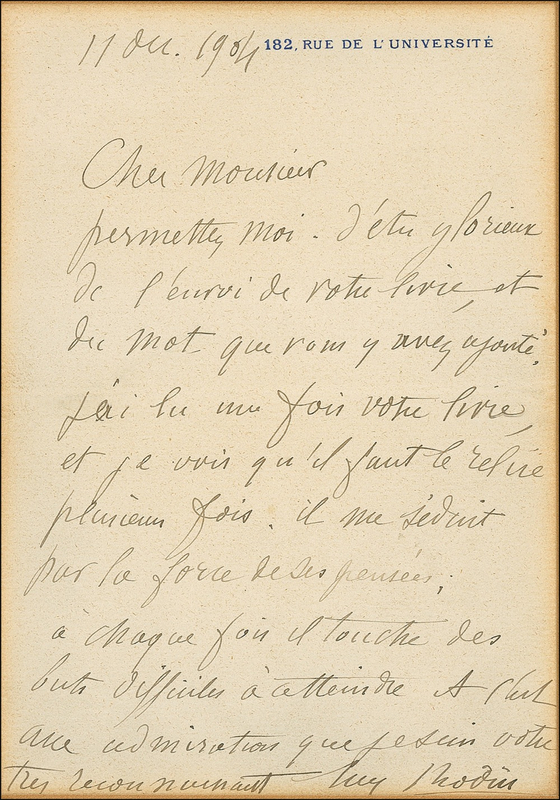 11 Dec. 1904 182, RUE DE L'UNIVERSITÉ
Cher Monsieur
permettez moi. d'être glorieux
de l'envoi de votre livre, et
du mot que vous y avez ajouté,
j'ai lu une fois votre livre,
et je vois qu'il faut le relire
plusieurs fois. il me séduit
par la force de ses pensées;
à chaque fois il touche des
buts difficiles à atteindre et c'est
avec admiration que je suis votre
très reconnaissant Aug Rodin